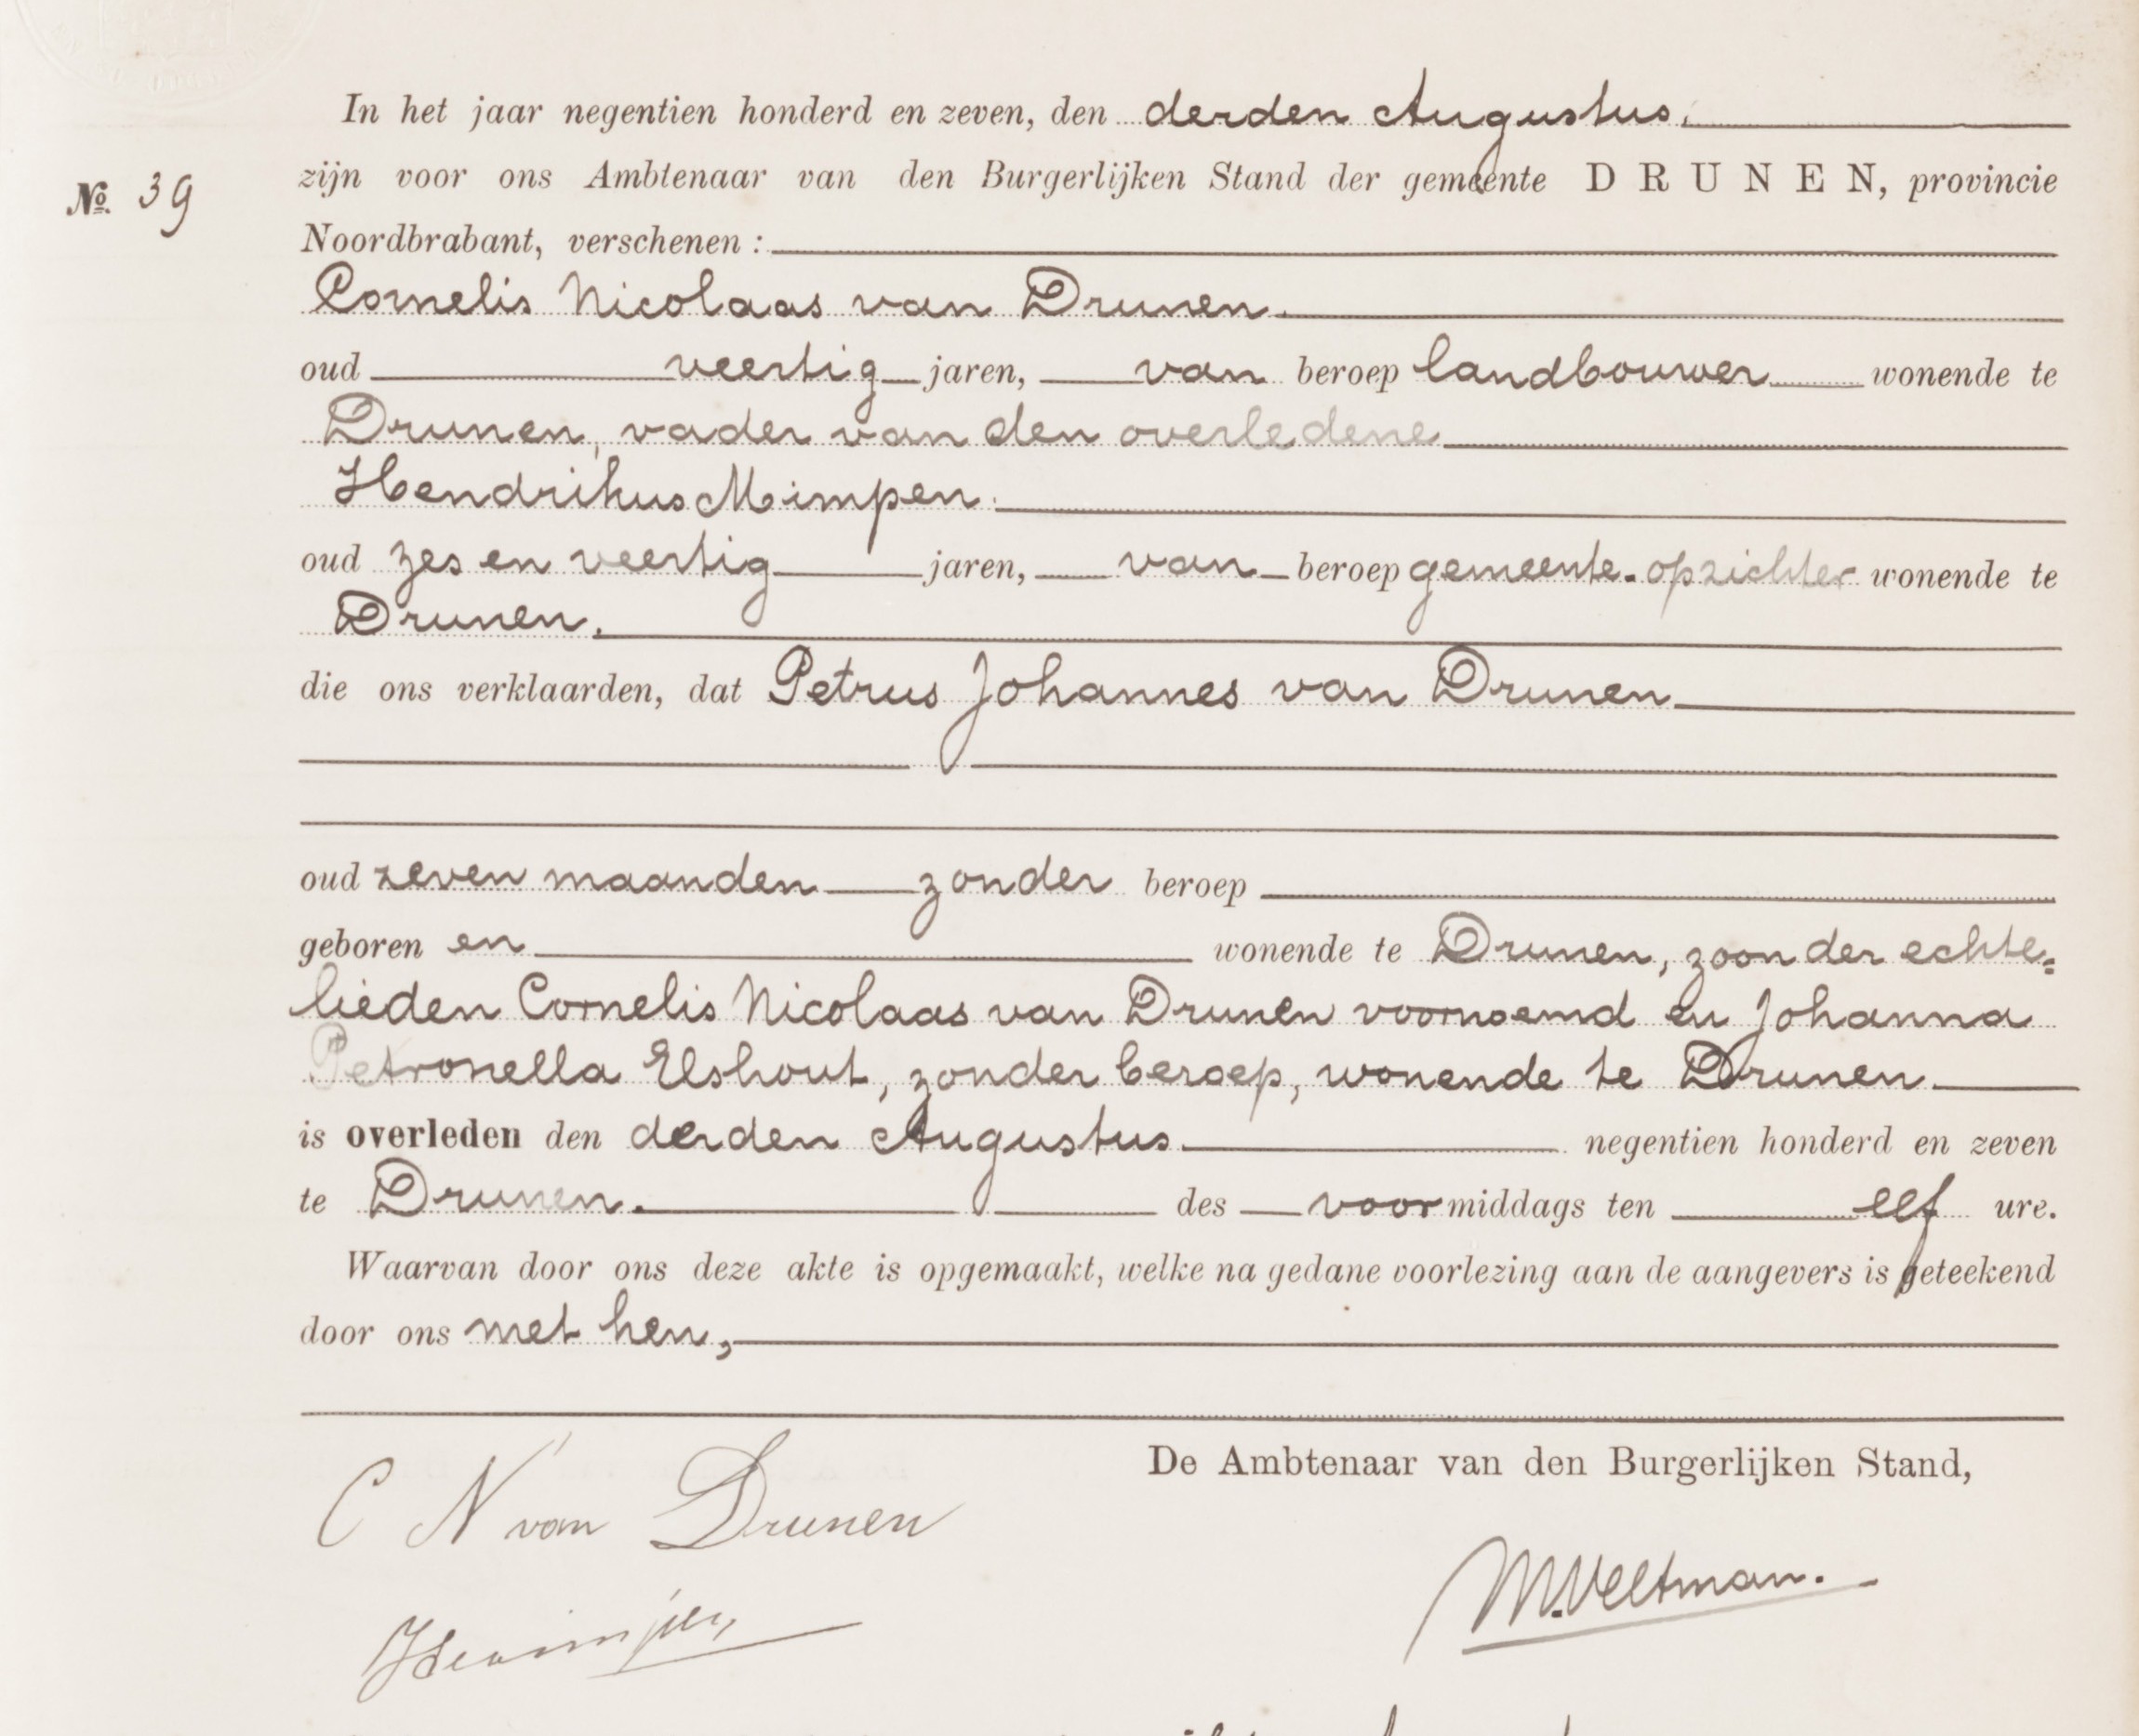 In het jaar negentien honderd en zeven, den derden Augustus.
№ 39
zijn voor ons Ambtenaar van den Burgerlijken Stand der gemeente DRUNEN, provincie
Noordbrabant, verschenen :
Cornelis Nicolaas van Drunen.
oud veertig jaren, van beroep landbouwer wonende te
Drunen, vader van den overledene
Hendrikus Mimpen.
oud zes en veertig jaren, van beroep gemeente-opzichter wonende te
Drunen.
die ons verklaarden, dat Petrus Johannes van Drunen
oud zeven maanden zonder beroep
geboren en wonende te Drunen, zoon der echte=
lieden Cornelis Nicolaas van Drunen voornoemd en Johanna
Petronella Elshout, zonder beroep, wonende te Drunen
is overleden den derden Augustus negentien honderd en zeven
te Drunen. des voormiddags ten elf ure.
Waarvan door ons deze akte is opgemaakt, welke na gedane voorlezing aan de aangevers is geteekend
door ons met hen,
De Ambtenaar van den Burgerlijken Stand,
C N van Drunen
M. Veltman.